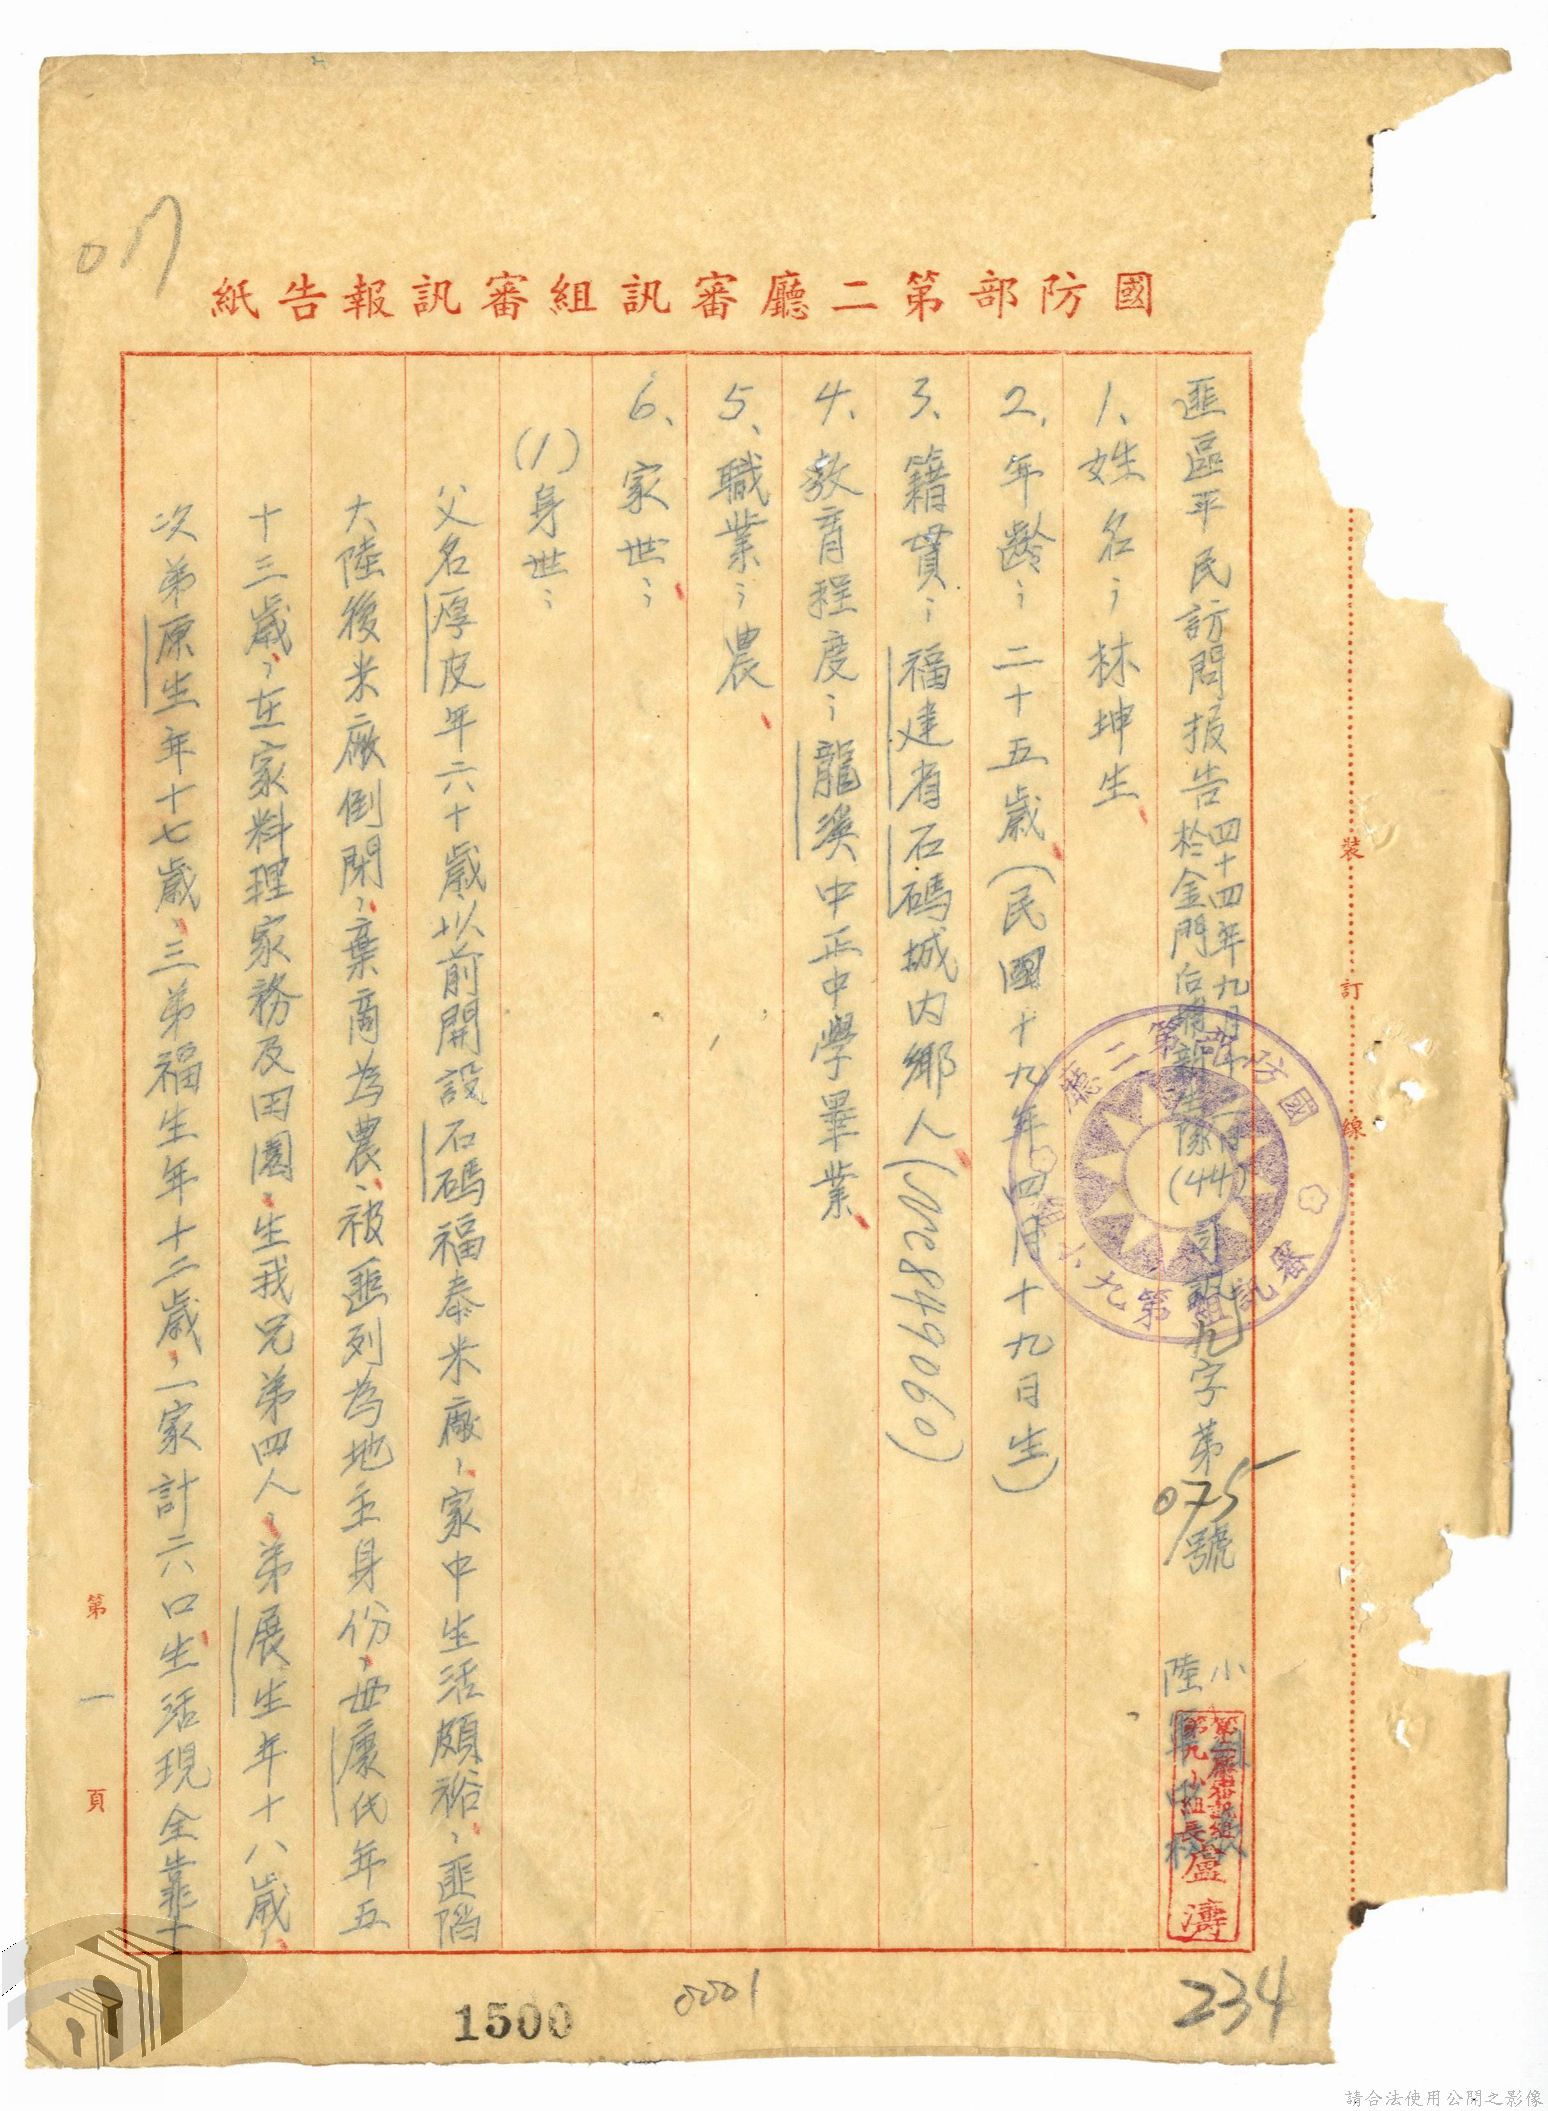 017
國防部第二廳審訊組審訊報告紙
匪區平民訪問报告
四十四年九月十二日
於金門后
新生隊
(44)
訊九字第075號
1、姓名：林坤生
2、年齡：二十五歲（民國十九年四月十九日生）
3、籍貫：福建省石碼城内鄉人(Mc849060)
4、教育程度：龍溪中正中學畢業
5、職業：農
6、家世：
(1)身世：
父名厚皮年六十歲、以前開設石碼福泰米廠，家中生活頗裕，匪陷
大陸後米廠倒閉，棄商為農、被匪列為地主身份，母康氏年五
十三歲，在家料理家務及田園，生我兄弟四人，弟展生年十八歲，
次弟原生年十七歲，三弟福生年十二歲，一家計六口生活現全靠
國防部第二廳審訊組第九
小組
陸
第二廳審訊組
第九小組長盧濤
裝
訂
線
第一頁
1500
0001
234
請合法使用公開之影像